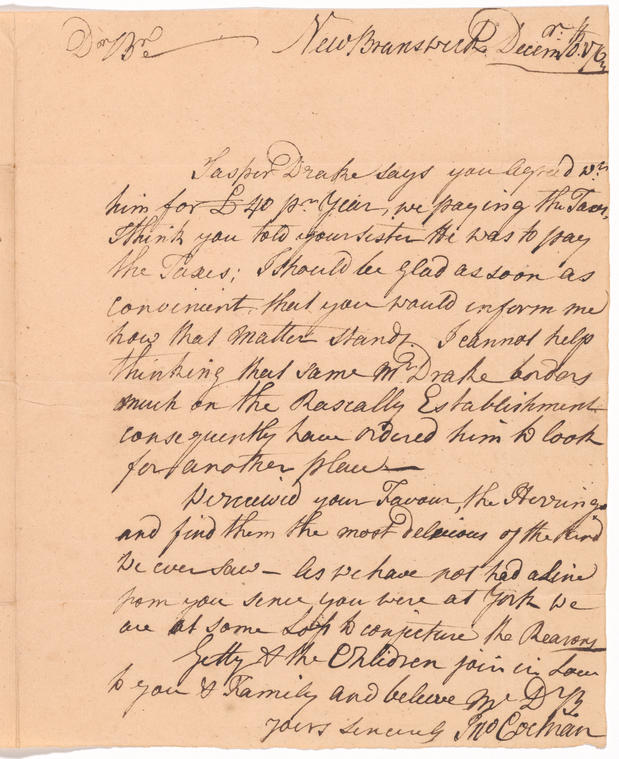 Dr Br New Brunswick Decemr 16. 1763
Jasper Drake says you agreed wn
him for £ 40 pr Year, we paying the Taxes,
I think you told your sister He was to pay
the Taxes; I should be glad as soon as
convinient that you would inform me
how that Matter stands. I cannot help
thinking that same Mr Drake borders
much on the Rascally Establishment
consequently have ordered him to look
for another place—
We received your Favour, the Herrings
and find them the most delicious of the kind
We ever saw – As we have not had a line
from you since you were at York we
are at some Loss to conjecture the Reasons
Getty & the Children join in Love
to you & Family and believe me Dr Br
yours sincerely Jno Cochran